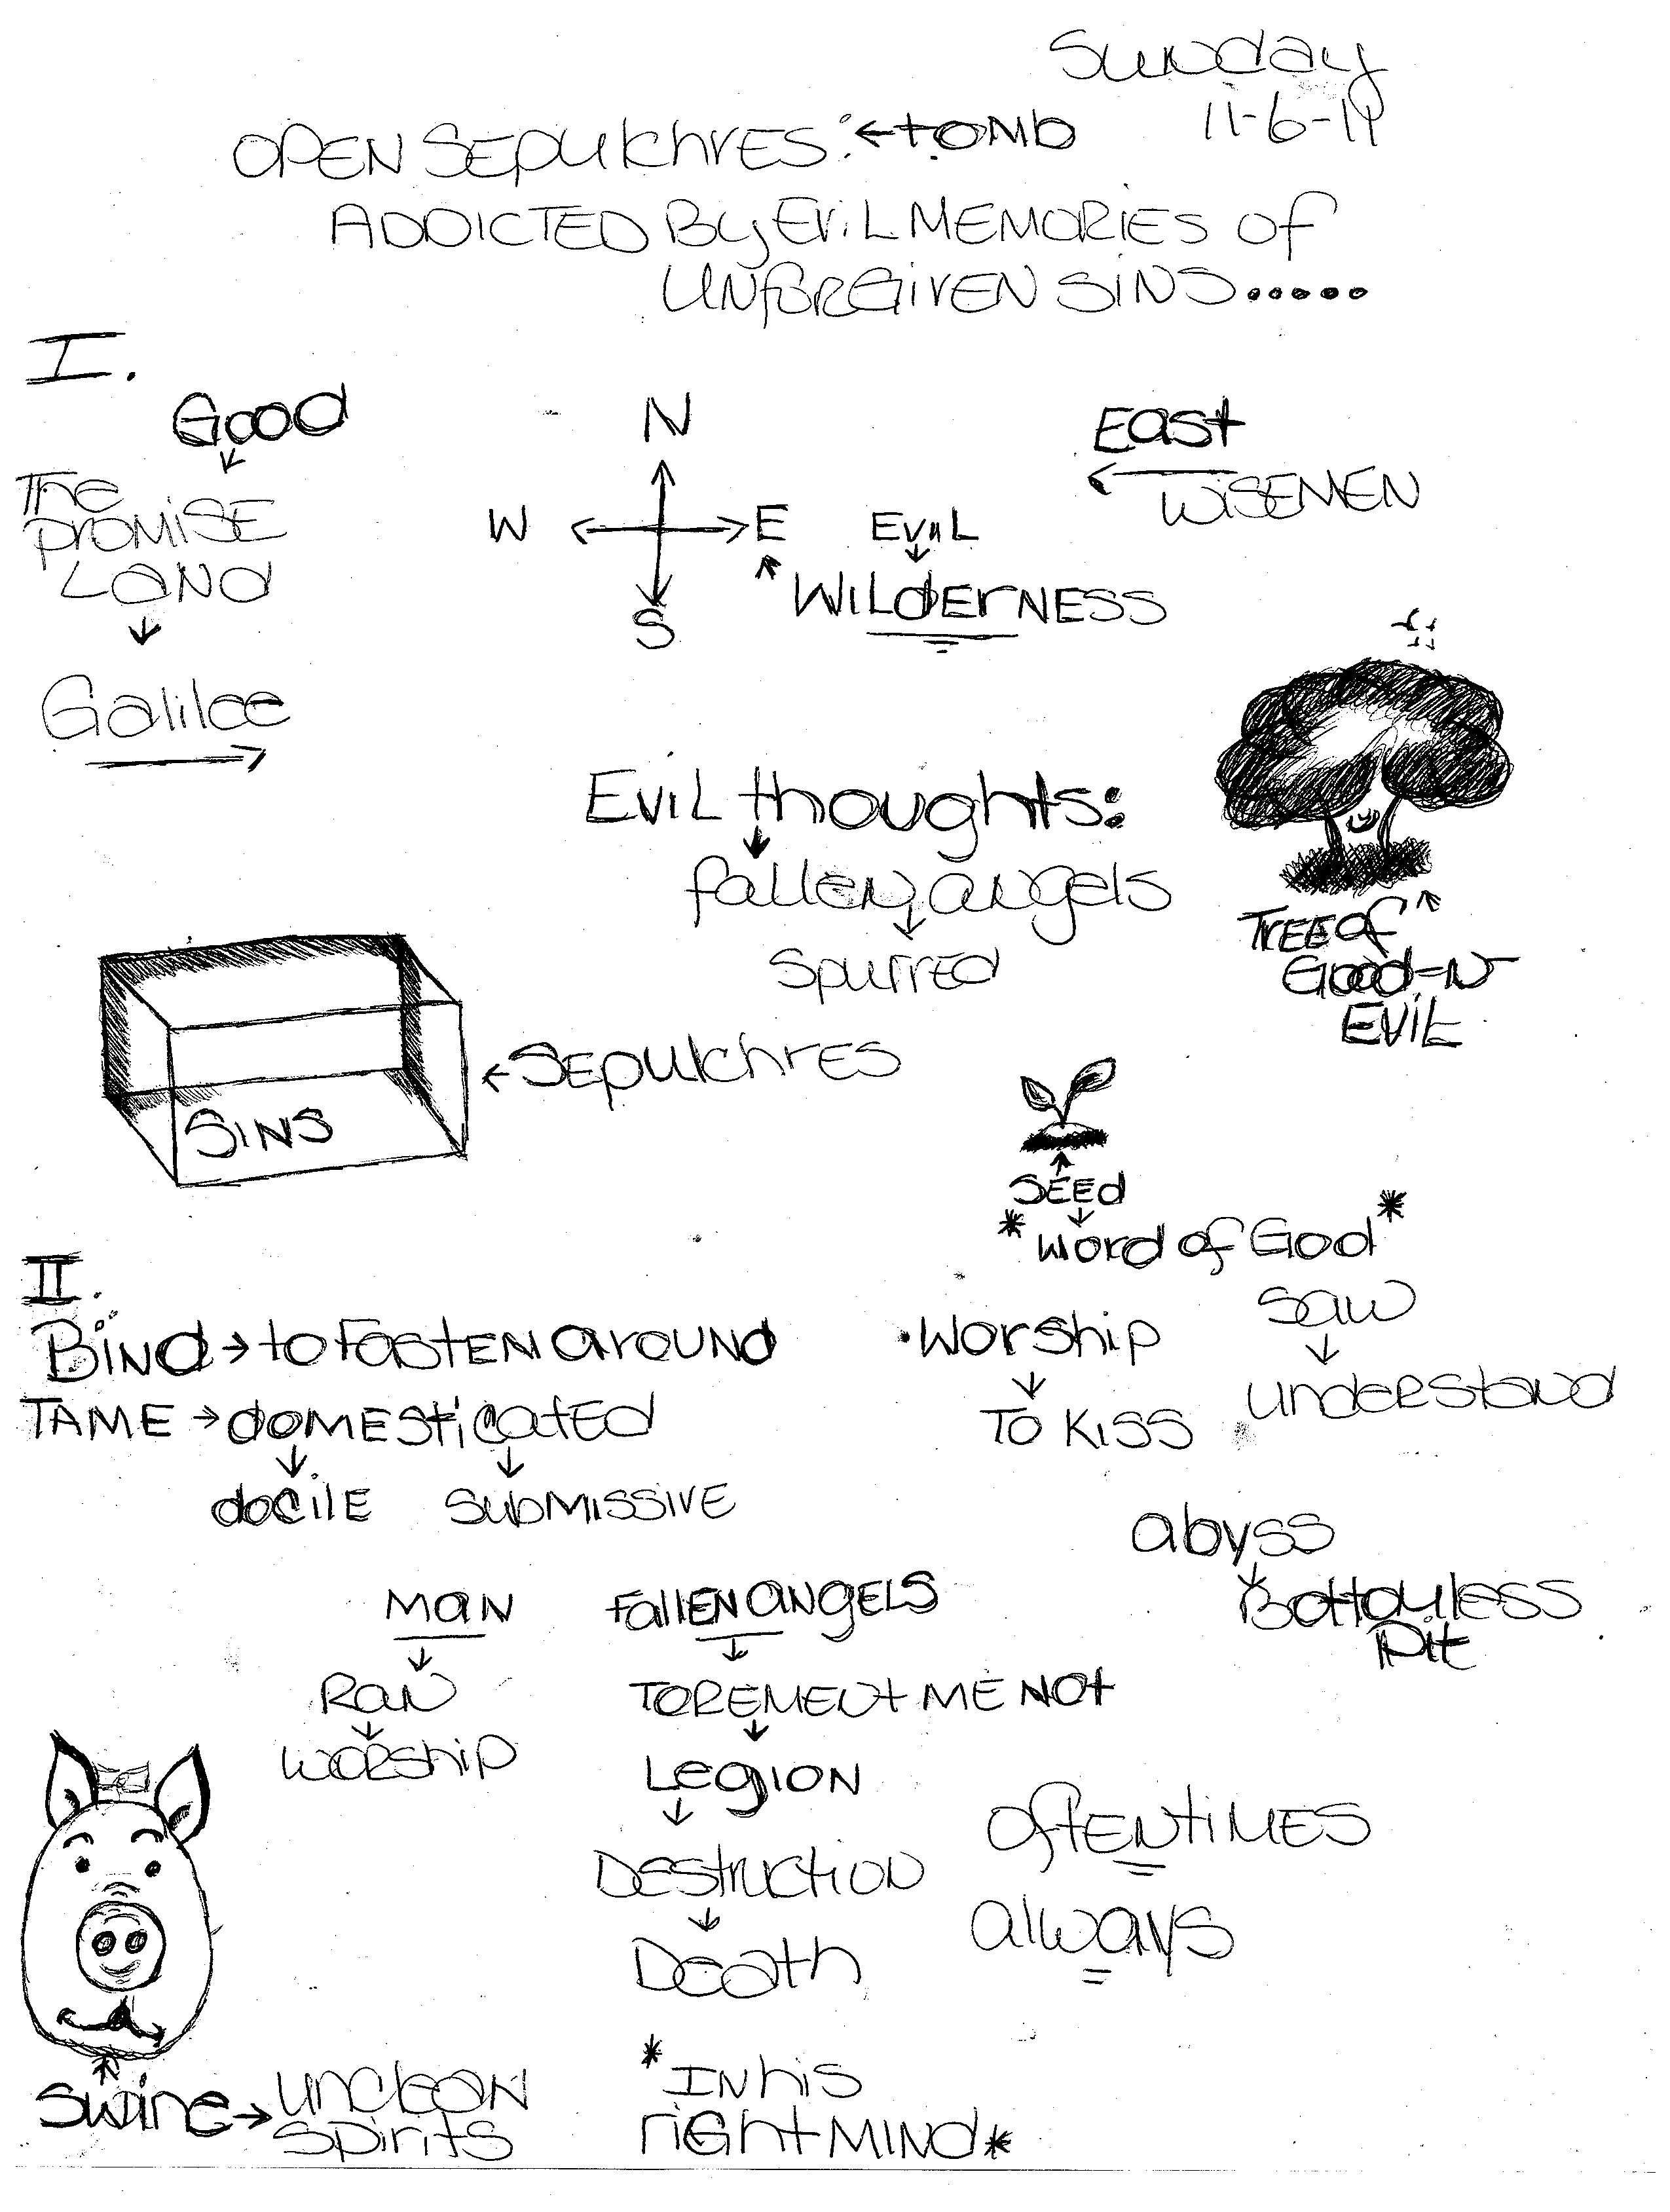 Sunday
11-6-11
OPEN SEPulchRES: ←tOMb
ADDICTED By EviL MEMORIES of
UNfORGIVEN SINS.....
I.
Good
The
PrOMISE
LaNd
Galilee
N
W E
S
EviL
WILdErNESS
East
WISEMEN
EviL thoughts:
fallen angels
Spurred
TrEE of
Good-N-
EVIL
SINS
←SEpulchrES
SEEd
*Word of God*
II.
BiNd→to FastEN arouNd
TAME→dOMEsticatEd
docilE SubMissivE
•Worship
To Kiss
Saw
uNdERstaNd
abyss
BottoMless
Pit
MaN
RaN
WORship
FallEN aNgELS
TOREMENt ME NOt
LegioN
DEstructioN
DEath
oftENtiMES
always
Swine→uNcleaN
spirits
*IN his
riGht MIND*